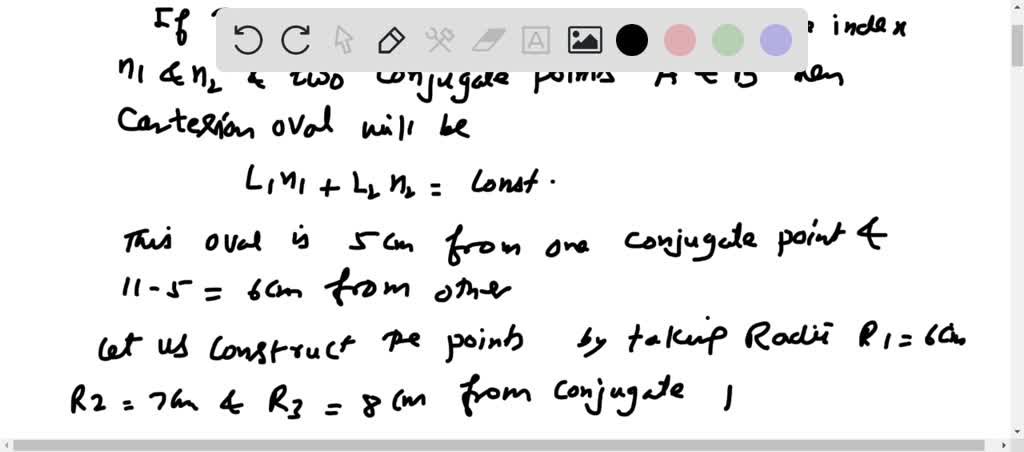 If index
n1 & n2 & two conjugate points A & B then
Cartesian oval will be
L1n1 + L2 n2 = Const.
This oval is 5cm from one conjugate point &
11-5 = 6cm from other
Let us construct the points by taking Radii R1 = 6cm
R2 = 7cm & R3 = 8 cm from conjugate